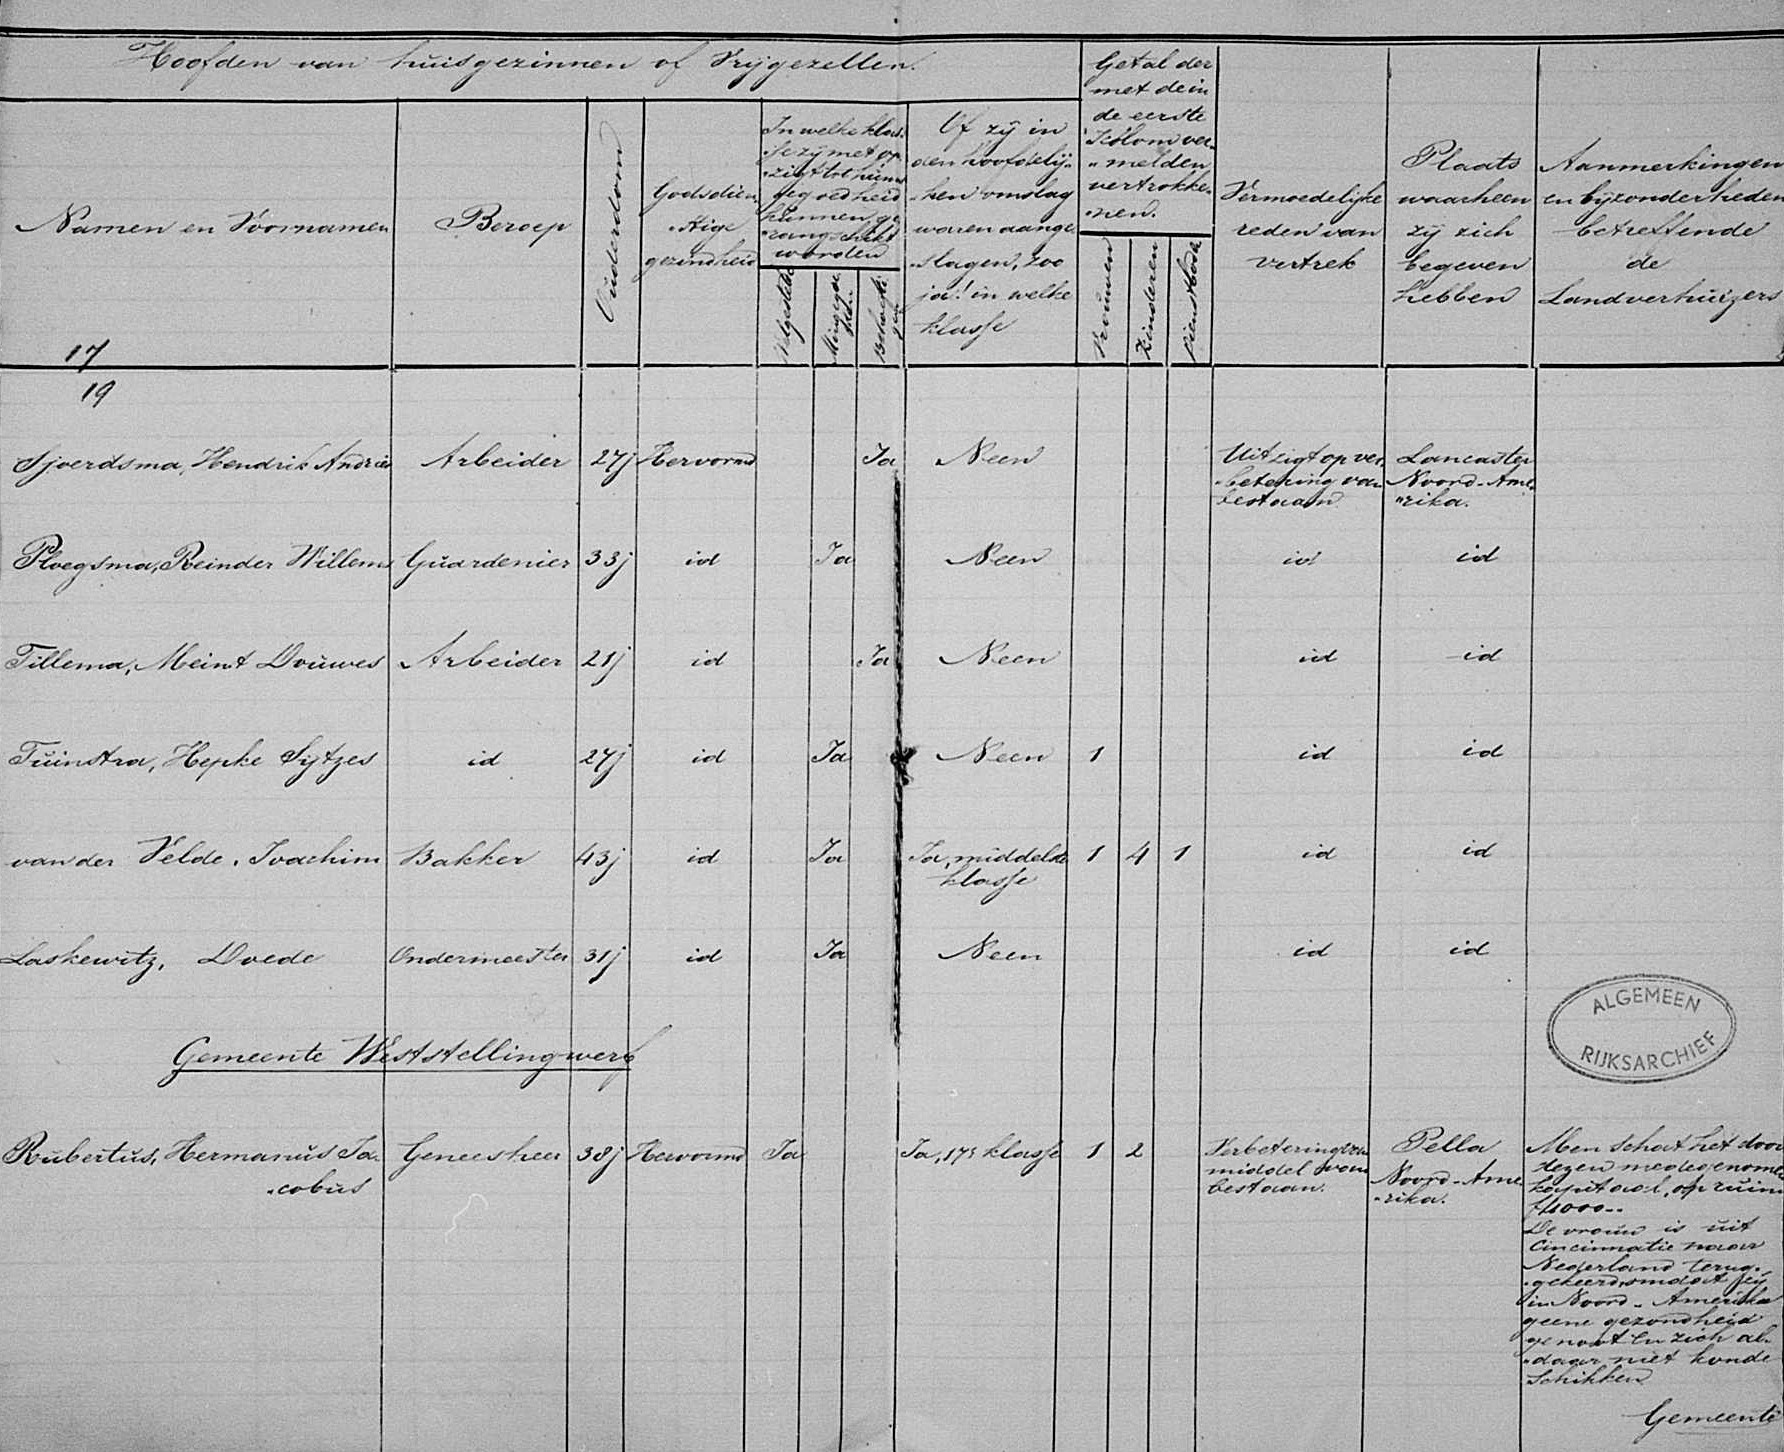 Hoofden van huisgezinnen of Vrijgezellen.
Getal der
met de in
de eerste
Kolom ver-
"melden
vertrokke-
"nen.
Namen en Voornamen
Beroep
Ouderdom
Godsdien
"stige
gezindheid
In welke klas-
"se zij met op-
"zigt tot hunne
gegoedheid
kunnen ge
"rangschikt
worden
Welgestelde
Mingegoe
den
Behoefti
gen
Of zij in
den hoofdelij-
"ken omslag
waren aange-
"slagen, zoo
ja! in welke
klasse
Vrouwen
Kinderen
Dienstbode
Vermoedelijke
reden van
vertrek
Plaats
waarheen
zij zich
begeven
hebben
Aanmerkingen
en bijzonderheden
betreffende
de
Landverhuizers
17
19
Sjoerdsma, Hendrik Andries Arbeider 27j Hervormd Ja Neen Uitzigt op ver- Lancaster
"betering van Noord-Ame-
bestaan "rika.
Ploegsma, Reinder Willems Guardenier 33j id Ja Neen id id
Tillema, Meint Douwes Arbeider 21j id Ja Neen id id
Tuinstra, Hepke Sijtzes id 27j id Ja Neen 1 id id
van der Velde, Joachim Bakker 43j id Ja Ja, middelste 1 4 1 id id
klasse
Laskewitz, Doede Ondermeester 31j id Ja Neen id id
ALGEMEEN
RIJKSARCHIEF
Gemeente Weststellingwerf
Rubertus, Hermanus Ja- Geneesheer 38j Hervormd Ja Ja, 17e klasse 1 2 Verbetering van Pella
"cobus middel van Noord-Ame
bestaan. "rika.
Men schat het door
dezen medegenomen
kapitaal, op ruim
De vrouw is uit
Cincinnatie naar
Nederland terug-
"gekeerd, omdat zij
in Noord-Amerika
geene gezondheid
genoot en zich al-
"daar niet konde
schikken
Gemeente